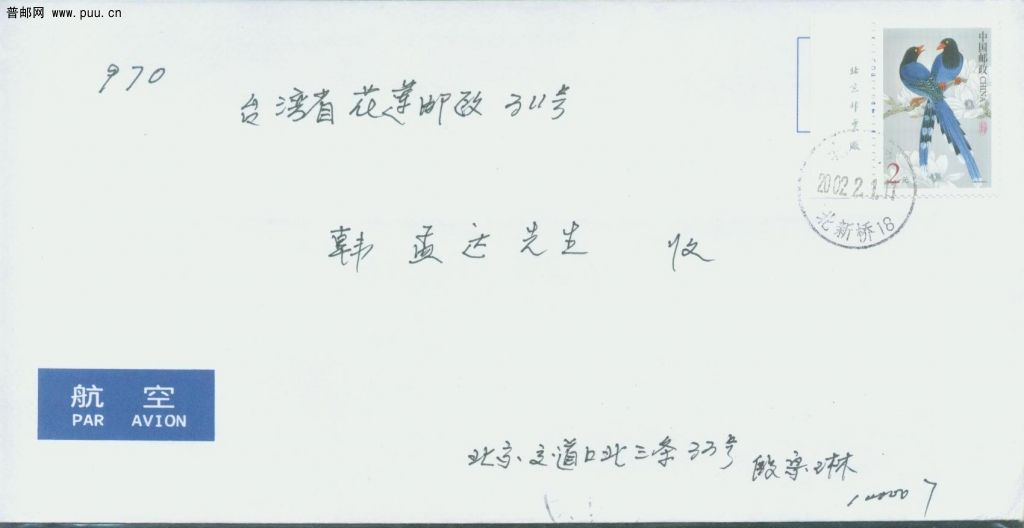 普邮网 www.puu.cn
970
台湾省花莲邮政311号
韩孟达先生 收
中国邮政 CHINA
北京邮票厂
2元
2002.2.1.17
北新桥18
航 空
PAR AVION
北京交道口北三条33号 殷梁琳
100007